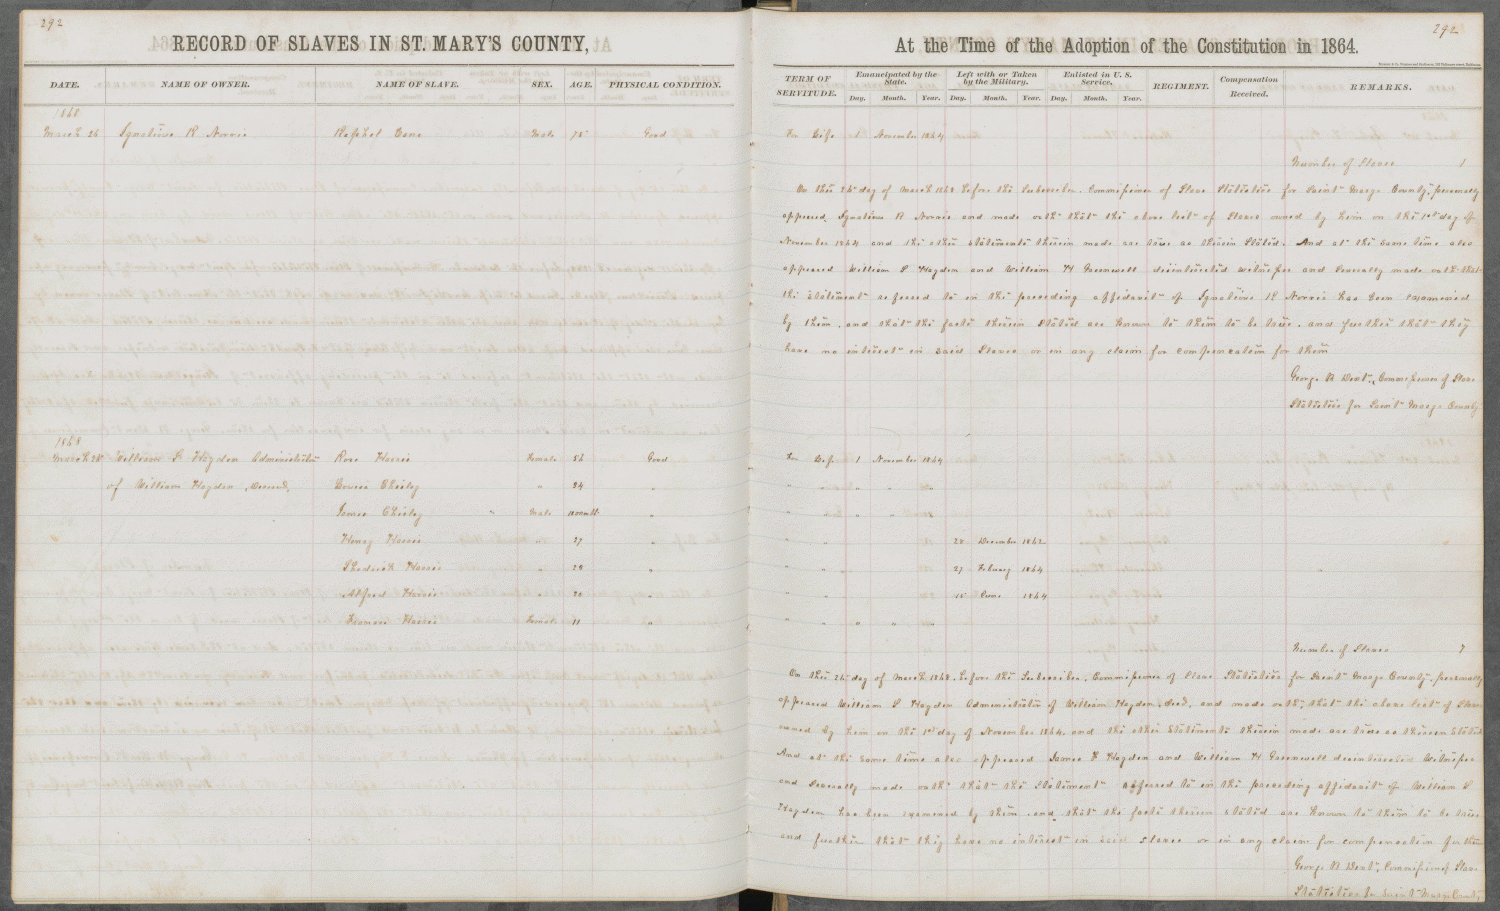 292
RECORD OF SLAVES IN ST. MARY'S COUNTY,
DATE. NAME OF OWNER. NAME OF SLAVE. SEX. AGE. PHYSICAL CONDITION.
1868
March 26 Ignatius R Norris Male 75 Good
1868
March 26 William L Hayden Administrator Rose Harris Female 52 Good
of William Hayden, Deceased, Louisa " 24 "
James Male "
Henry Harris " 27 "
Harris " 28 "
Alfred Harris " 20 "
Harris Female 11 "
292
At the Time of the Adoption of the Constitution in 1864.
TERM OF SERVITUDE. Emancipated by the State. Left with or Taken by the Military. Enlisted in U. S. Service. REGIMENT. Compensation Received. REMARKS.
Day. Month. Year. Day. Month. Year. Day. Month. Year.
For Life 1 November 1864
Number of Slaves 1
On this 26 day of March 1868 before the Subscriber. Commissioner of Slave Statistics for Saint Marys County, personally
appeared Ignatius R Norris and made oath that the above list of Slaves owned by him on the 1st day of
November 1864 and the other statements therein made are true as therein stated. And at the same time also
appeared William L Hayden and William H Greenwell disinterested witnesses and severally made oath that
the statement referred to in the preceding affidavit of Ignatius R Norris has been examined
by them, and that the facts therein stated are known to them to be true, and further that they
have no interest in said Slaves or in any claim for compensation for them
George B Dent, Commissioner of Slave
Statistics for Saint Marys County
For Life 1 November 1864
" " " " "
" " " " "
" " 20 December 1862
" " 27 February 1864
" " 15 June 1864
" " " " "
Number of Slaves 7
On this 26 day of March 1868, before the Subscriber, Commissioner of Slave Statistics for Saint Marys County, personally
appeared William L Hayden Administrator of William Hayden, decd, and made oath, that the above list of Slaves
owned by him on the 1st day of November 1864, and the other Statements therein made are true as therein Stated
And at the same time also appeared James F Hayden and William H Greenwell disinterested Witnesses
and severally made oath that the Statement referred to in the preceding affidavit of William L
Hayden has been examined by them and that the facts therein stated are known to them to be true
and further that they have no interest in said slaves or in any claim for compensation for them
George B Dent, Commissioner of Slave
Statistics for Saint Marys County